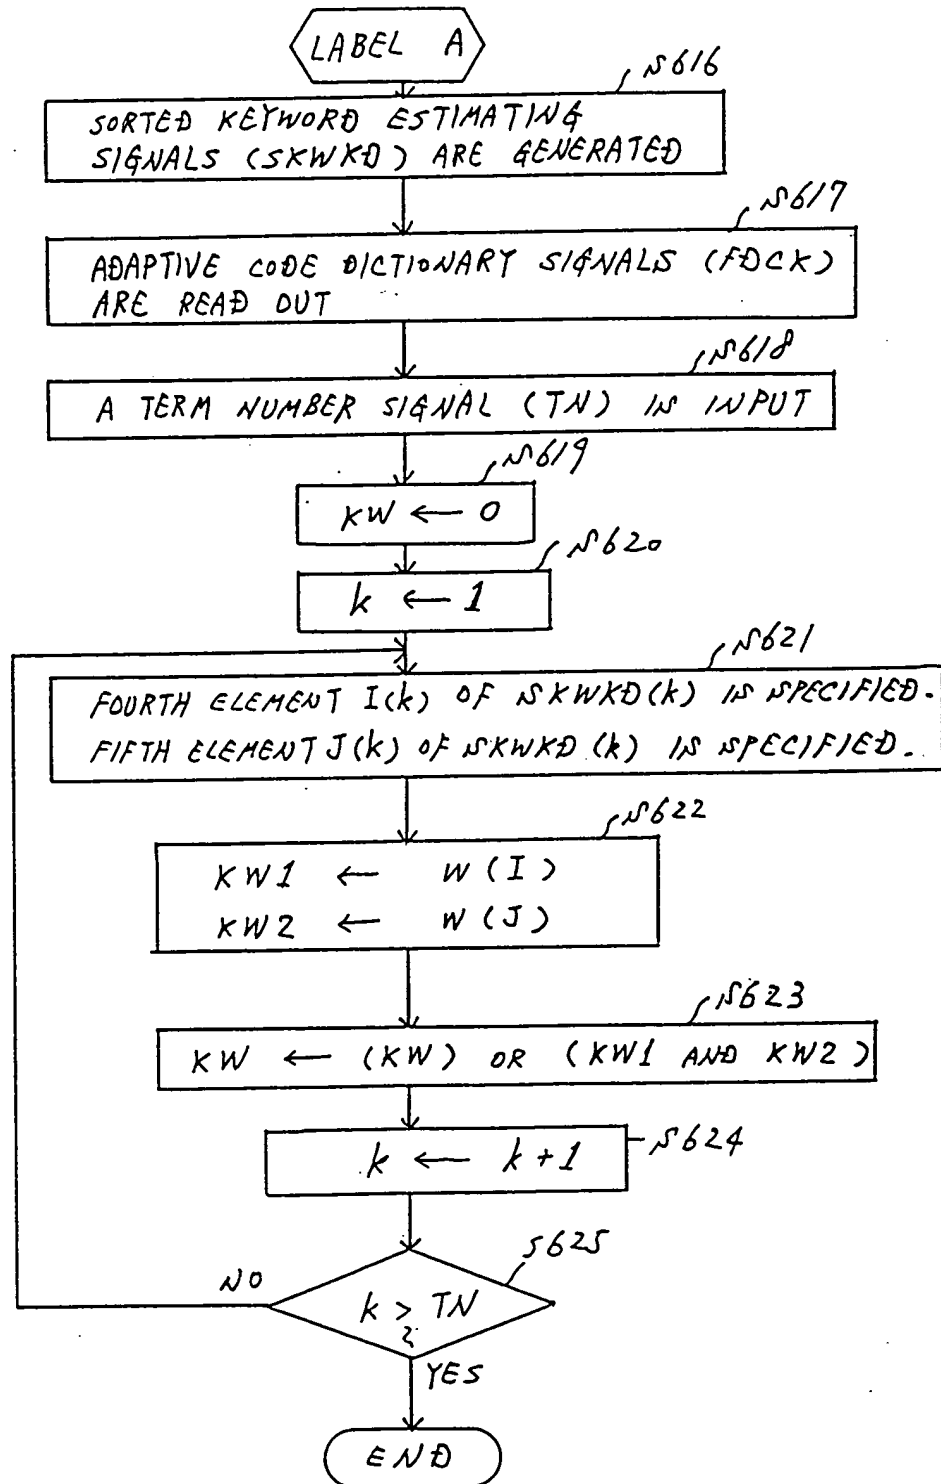 LABEL A
S616
SORTED KEYWORD ESTIMATING
SIGNALS (SKWKD) ARE GENERATED
S617
ADAPTIVE CODE DICTIONARY SIGNALS (FDCK)
ARE READ OUT
S618
A TERM NUMBER SIGNAL (TN) IS INPUT
S619
KW ← 0
S620
k ← 1
S621
FOURTH ELEMENT I(k) OF SKWKD(k) IS SPECIFIED.
FIFTH ELEMENT J(k) OF SKWKD (k) IS SPECIFIED.
S622
KW1 ← W(I)
KW2 ← W(J)
S623
KW ← (KW) OR (KW1 AND KW2)
S624
k ← k+1
S625
NO
k > TN
?
YES
END